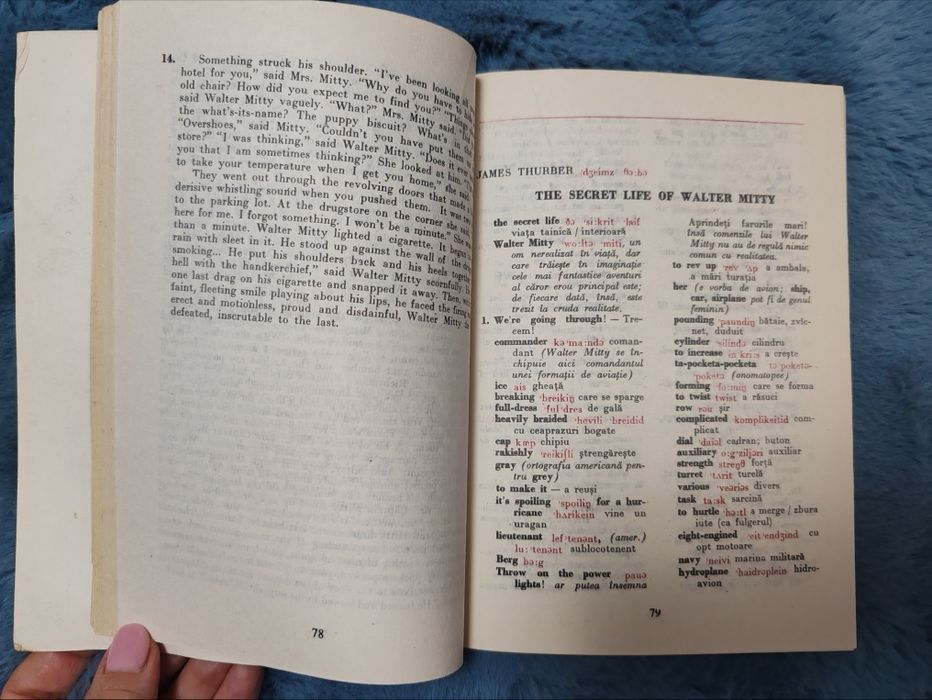 14. Something struck his shoulder. "I've been looking all
hotel for you," said Mrs. Mitty. "Why do you have to hide
old chair? How did you expect me to find you?" "Things
said Walter Mitty vaguely. "What?" Mrs. Mitty said.
the what's-its-name? The puppy biscuit? What's in
"Overshoes," said Mitty. "Couldn't you have put them
store?" "I was thinking," said Walter Mitty. "Does it ever
you that I am sometimes thinking?" She looked at him.
to take your temperature when I get you home," she said.
They went out through the revolving doors that made a
derisive whistling sound when you pushed them. It was two
to the parking lot. At the drugstore on the corner she said,
here for me. I forgot something. I won't be a minute." She was
than a minute. Walter Mitty lighted a cigarette. It began
rain with sleet in it. He stood up against the wall of the
smoking... He put his shoulders back and his heels together.
hell with the handkerchief," said Walter Mitty scornfully. He
one last drag on his cigarette and snapped it away. Then, with
faint, fleeting smile playing about his lips, he faced the firing
erect and motionless, proud and disdainful, Walter Mitty the
defeated, inscrutable to the last.
78
JAMES THURBER 'dʒeimz 'θə:bə
THE SECRET LIFE OF WALTER MITTY
the secret life ðə 'si:krit 'laif
viața tainică / interioară
Walter Mitty 'wo:ltə 'miti, un
om nerealizat în viață, dar
care trăiește în imaginație
cele mai fantastice aventuri
al căror erou principal este;
de fiecare dată, însă, este
trezit la cruda realitate.
1. We're going through! — Tre-
cem!
commander kə'ma:ndə coman-
dant (Walter Mitty se în-
chipuie aici comandantul
unei formații de aviație)
ice ais gheață
breaking 'breikiŋ care se sparge
full-dress 'ful'dres de gală
heavily braided 'hevili 'breidid
cu ceaprazuri bogate
cap kæp chipiu
rakishly 'reikiʃli ștrengărește
gray (ortografia americană pen-
tru grey)
to make it — a reuși
it's spoiling 'spoiliŋ for a hur-
ricane 'hʌrikein vine un
uragan
lieutenant lef'tenənt, (amer.)
lu:'tenənt sublocotenent
Berg bə:g
Throw on the power pauə
lights! ar putea însemna
Aprindeți farurile mari!
însă comenzile lui Walter
Mitty nu au de regulă nimic
comun cu realitatea.
to rev up 'rev ʌp a ambala,
a mări turația
her (e vorba de avion; ship,
car, airplane pot fi de genul
feminin)
pounding 'paundiŋ bătaie, zvîc-
net, duduit
cylinder 'silində cilindru
to increase in'kri:s a crește
ta-pocketa-pocketa tə'poketə-
'poketə (onomatopee)
forming 'fo:miŋ care se forma
to twist twist a răsuci
row rou șir
complicated 'komplikeitid com-
plicat
dial 'daiəl cadran; buton
auxiliary o:g'ziljəri auxiliar
strength streŋθ forță
turret 'tʌrit turelă
various 'veəriəs divers
task ta:sk sarcină
to hurtle 'hə:tl a merge / zbura
iute (ca fulgerul)
eight-engined 'eit'endʒind cu
opt motoare
navy 'neivi marina militară
hydroplane 'haidroplein hidro-
avion
79